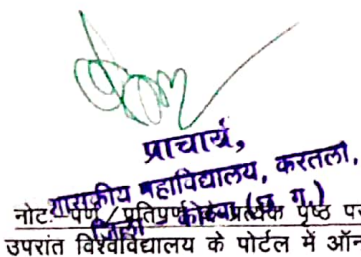 प्राचार्य,
शासकीय महाविद्यालय, करतला,
जिला - कोरबा (छ. ग.)
नोट: पर्ण / प्रतिपर्ण के प्रत्येक पृष्ठ पर
उपरांत विश्वविद्यालय के पोर्टल में ऑन